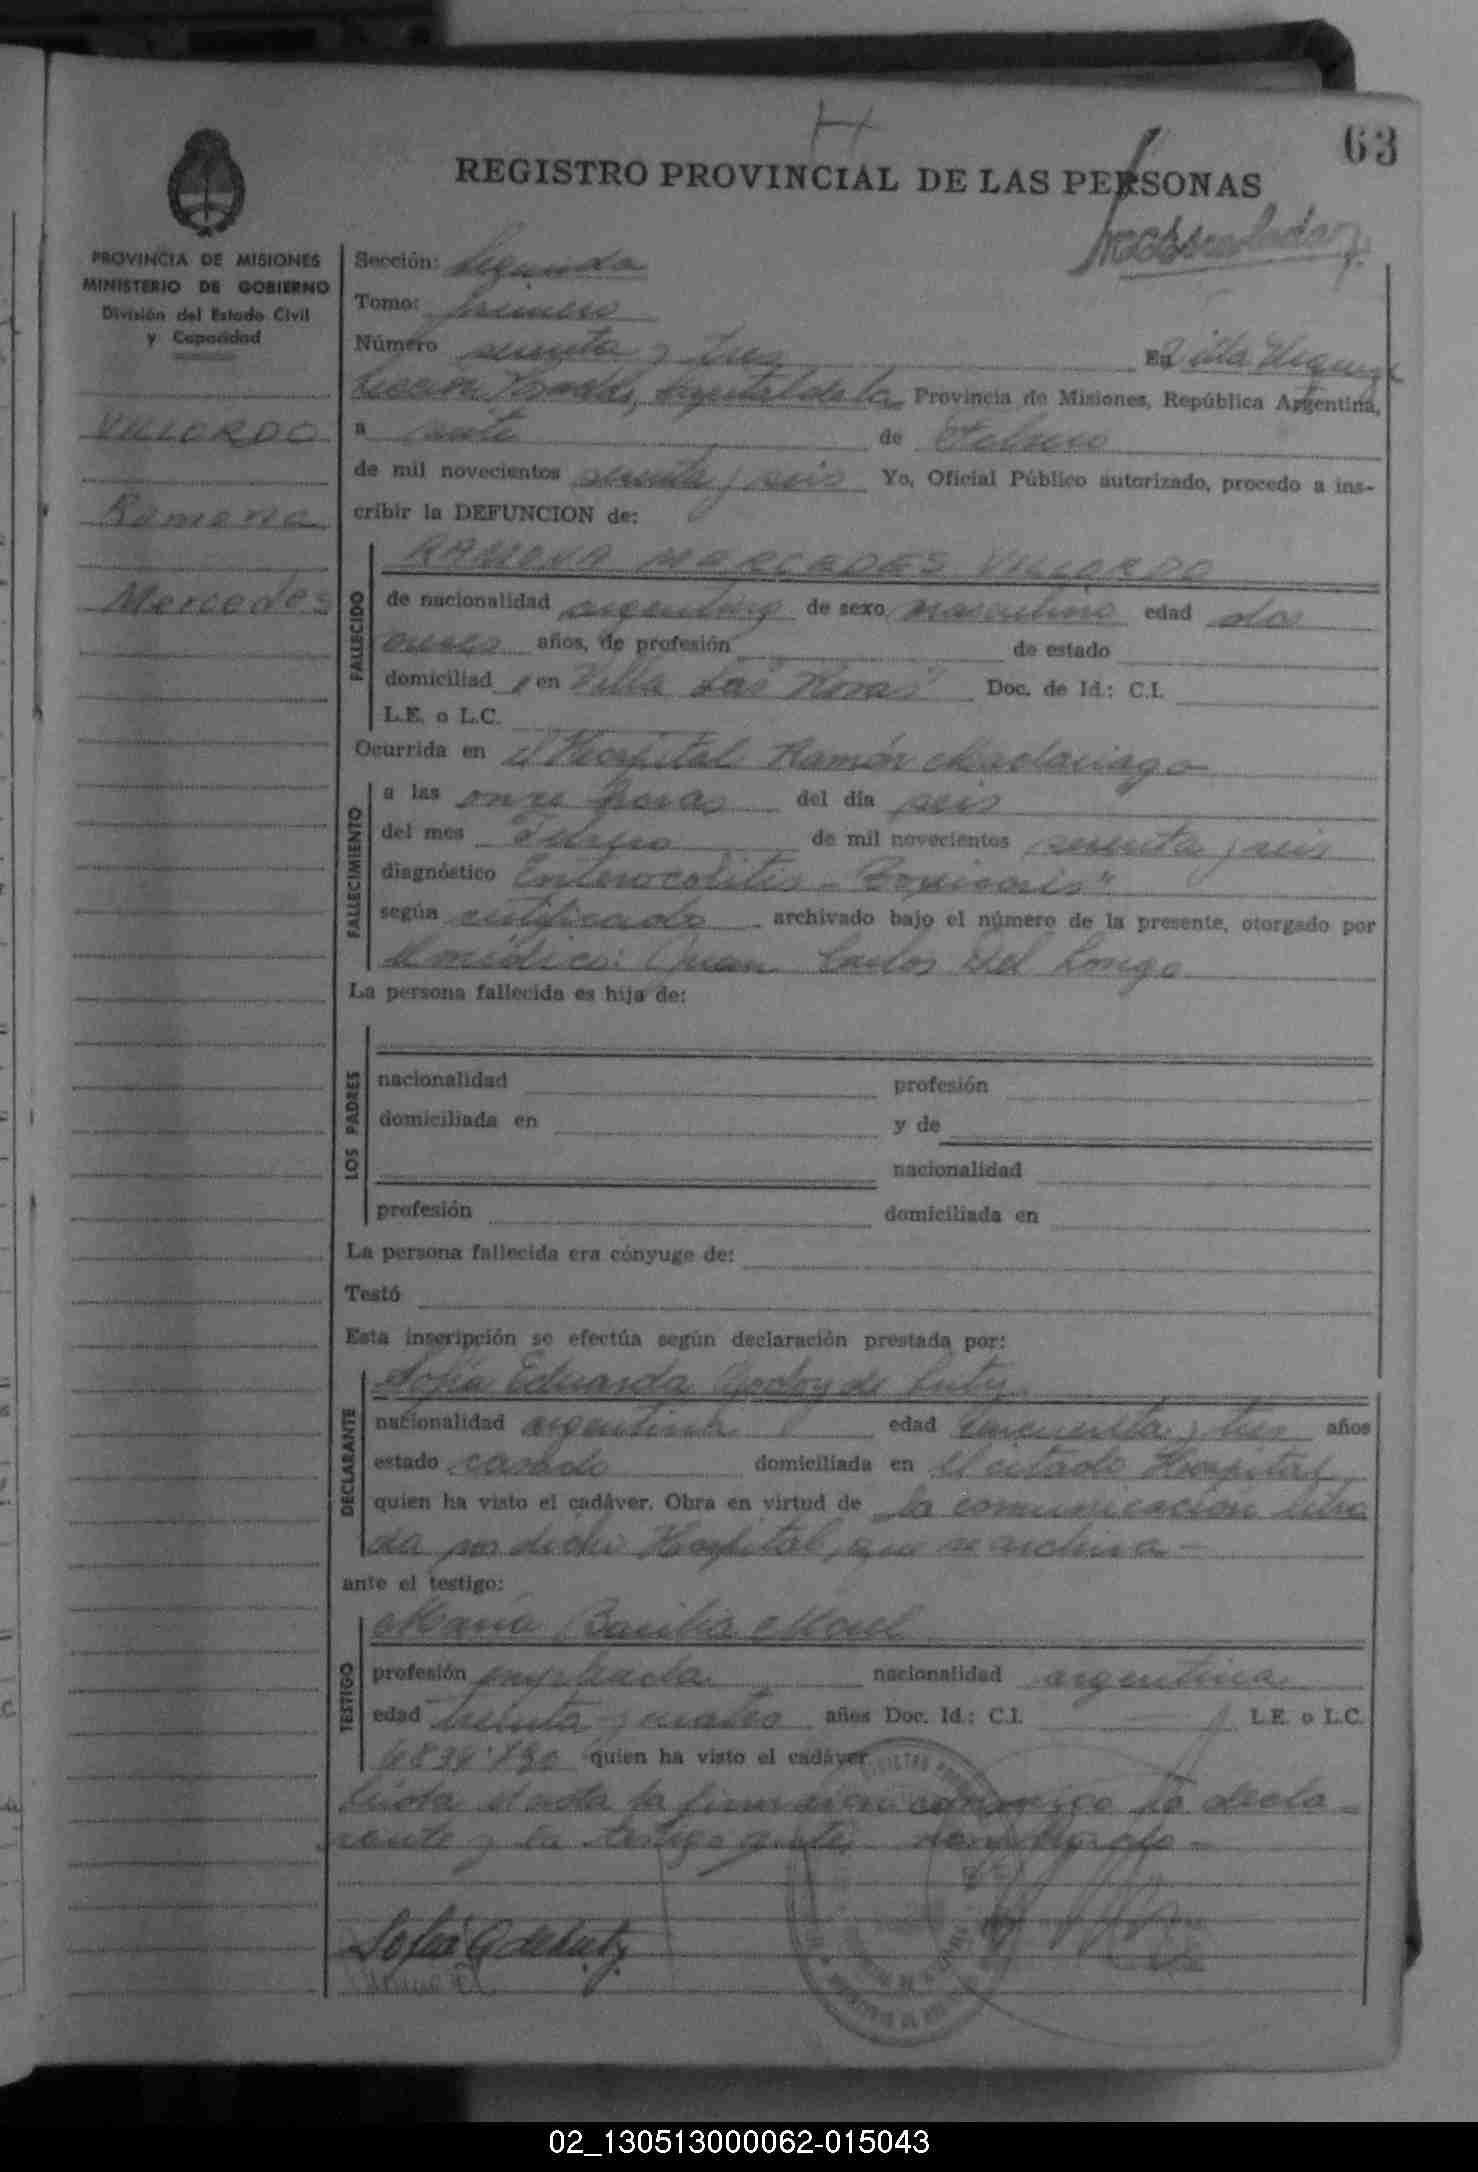 63
REGISTRO PROVINCIAL DE LAS PERSONAS
PROVINCIA DE MISIONES
MINISTERIO DE GOBIERNO
División del Estado Civil
y Capacidad
VILLORDO
Ramona
Mercedes
Sección: Segunda
Tomo: primero
Número sesenta y tres En Villa Urquiza
Posadas, Capital de la Provincia de Misiones, República Argentina,
a siete de Febrero
de mil novecientos sesenta y seis Yo, Oficial Público autorizado, procedo a ins-
cribir la DEFUNCION de:
RAMONA MERCEDES VILLORDO
FALLECIDO
de nacionalidad argentina de sexo masculino edad dos
meses años, de profesión de estado
domiciliad en Villa Las Doc. de Id.: C.I.
L.E. o L.C.
Ocurrida en el Hospital Ramón Madariaga
FALLECIMIENTO
a las once horas del día seis
del mes Febrero de mil novecientos sesenta y seis
diagnóstico Enterocolitis -
según certificado archivado bajo el número de la presente, otorgado por
el médico: Juan Carlos Del Longo
La persona fallecida es hija de:
LOS PADRES
nacionalidad profesión
domiciliada en y de
nacionalidad
profesión domiciliada en
La persona fallecida era cónyuge de:
Testó
Esta inscripción se efectúa según declaración prestada por:
DECLARANTE
Sofía Eduarda Godoy de
nacionalidad argentina edad cincuenta y tres años
estado casada domiciliada en el citado Hospital
quien ha visto el cadáver. Obra en virtud de la comunicación libra
da por dicho Hospital, que se archiva -
ante el testigo:
TESTIGO
María Basilia
profesión empleada nacionalidad argentina
edad treinta y cuatro años Doc. Id.: C.I. L.E. o L.C.
quien ha visto el cadáver
Leída el acta la firman conmigo la decla-
rante y la testigo antes nombrada -
Sofía G de
02_130513000062-015043